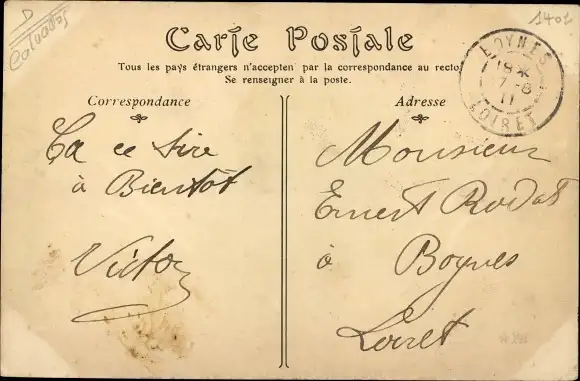 D
Calvados
1402
Carte Postale
Tous les pays étrangers n'acceptent pas la correspondance au recto.
Se renseigner à la poste.
BOYNES
18 *
7-8
11
LOIRET
Correspondance
Ça ce tire
à Bientôt
Victor
Adresse
Monsieur
Ernest Rodat
à Boynes
Loiret